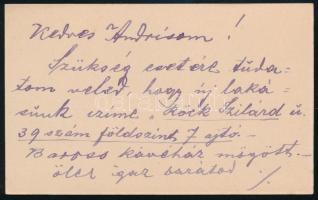 Kedves Andrisom!
Szükség esetére tuda=
tom veled, hogy új laká=
sunk címe: Rock Szilárd u.
39 szám földszint 7 ajtó –
Baross kávéház mögött. –
ölel igaz barátod